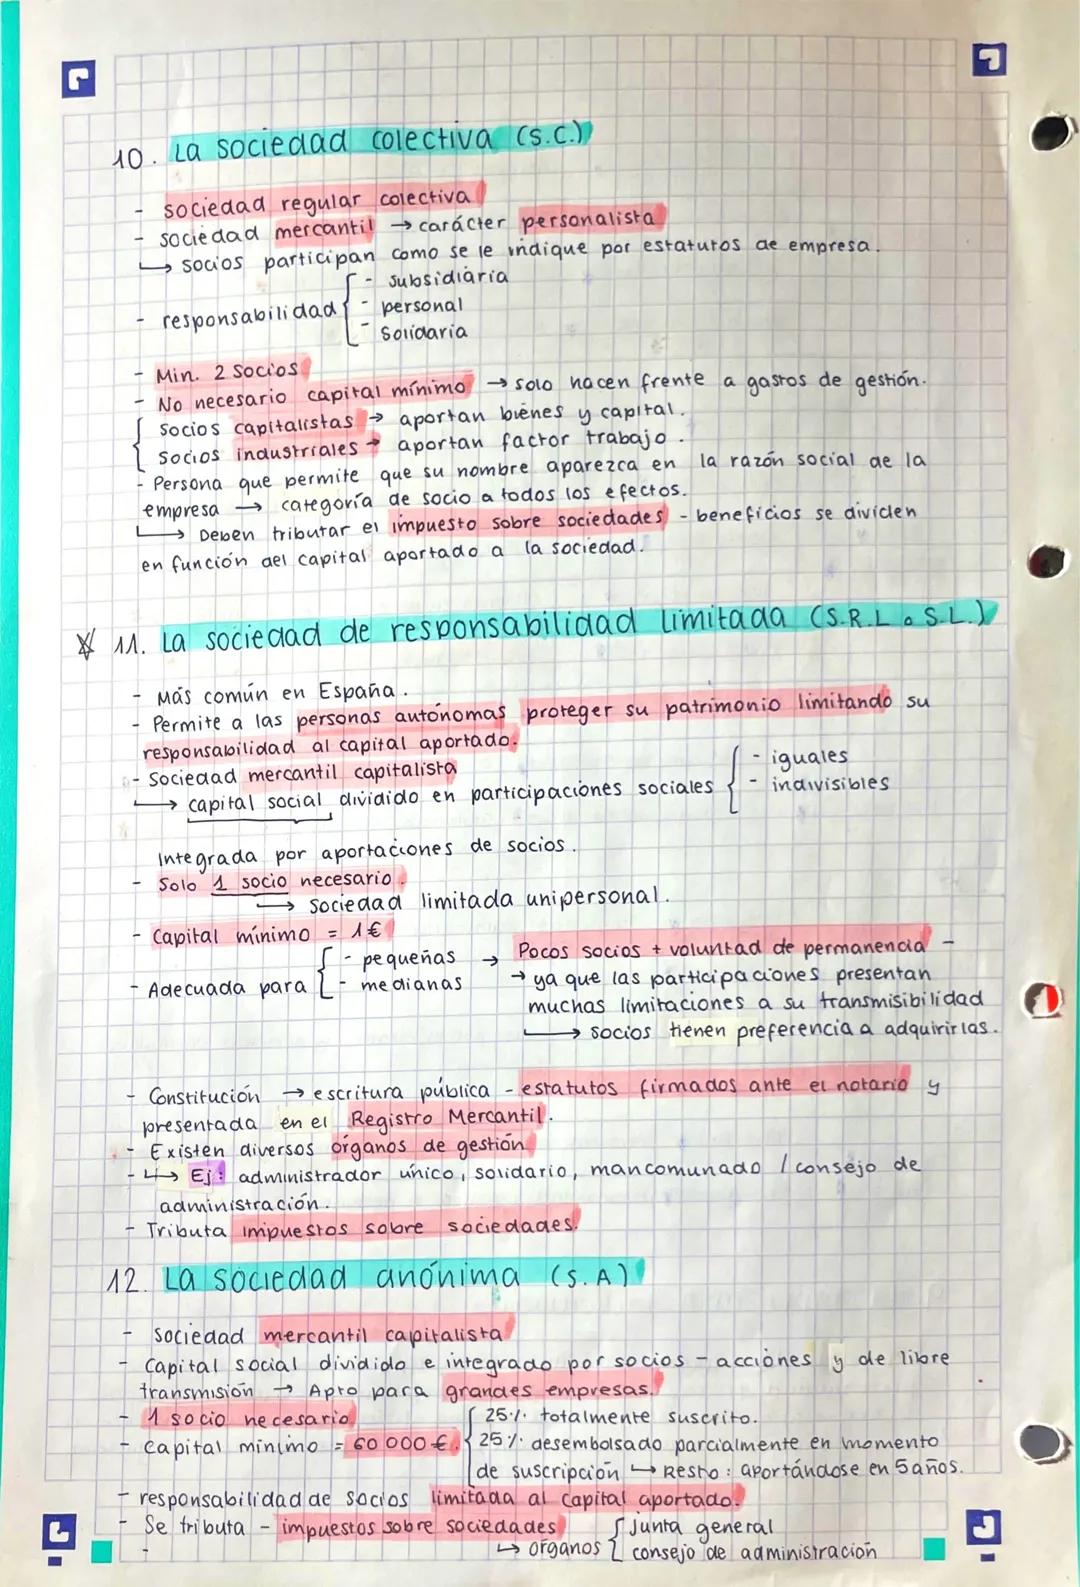 10. La sociedad colectiva (S.C.)
- sociedad regular colectiva
- sociedad mercantil → carácter personalista
↳ socios participan como se le indique por estatutos de empresa.
- responsabilidad { - subsidiaria
- personal
- Solidaria
- Min. 2 Socios
- No necesario capital mínimo → solo hacen frente a gastos de gestión.
{ socios capitalistas → aportan bienes y capital.
socios industriales → aportan factor trabajo.
- Persona que permite que su nombre aparezca en la razón social de la
empresa → categoría de socio a todos los efectos.
↳ Deben tributar el impuesto sobre sociedades - beneficios se dividen
en función del capital aportado a la sociedad.
11. La sociedad de responsabilidad Limitada (S.R.L o S.L.)
- Más común en España.
- Permite a las personas autónomas proteger su patrimonio limitando su
responsabilidad al capital aportado.
- Sociedad mercantil capitalista
↳ capital social dividido en participaciones sociales { - iguales
- indivisibles
Integrada por aportaciones de socios.
- Solo 1 socio necesario.
↳ Sociedad limitada unipersonal.
- Capital mínimo = 1€
- Adecuada para { - pequeñas → Pocos socios + voluntad de permanencia -
- medianas → ya que las participaciones presentan
muchas limitaciones a su transmisibilidad
↳ socios tienen preferencia a adquirirlas.
- Constitución → escritura pública - estatutos firmados ante el notario y
presentada en el Registro Mercantil.
- Existen diversos órganos de gestión
- ↳ Ej: administrador único, solidario, mancomunado / consejo de
administración.
- Tributa impuestos sobre sociedades.
12. La sociedad anónima (S.A)
- Sociedad mercantil capitalista
- Capital social dividido e integrado por socios - acciones y de libre
transmisión → Apto para grandes empresas.
- 1 socio necesario
- Capital mínimo = 60 000 €. { 25% totalmente suscrito.
25% desembolsado parcialmente en momento
de suscripción ↳ Resto: aportándose en 5 años.
- responsabilidad de socios limitada al capital aportado.
- Se tributa - impuestos sobre sociedades
↳ órganos { junta general
consejo de administración